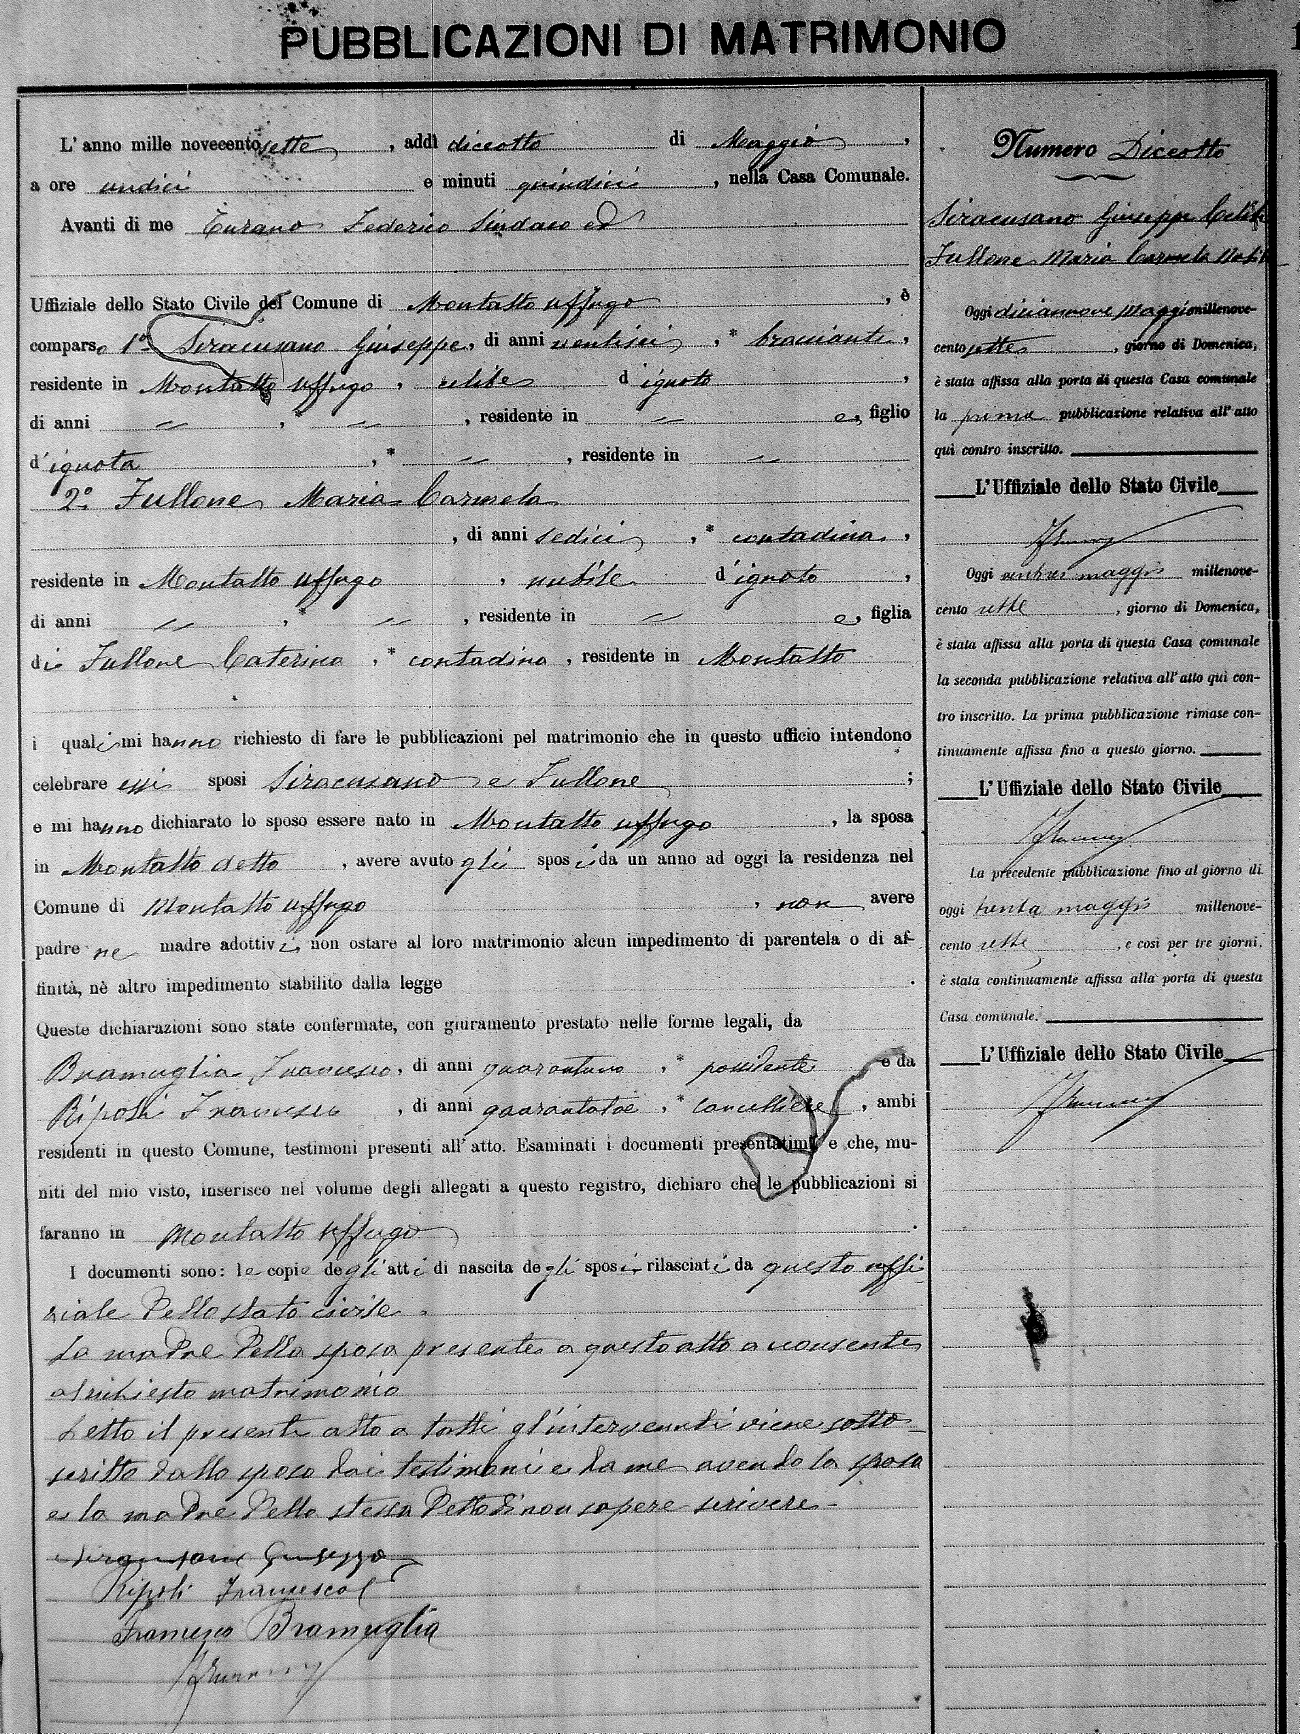 PUBBLICAZIONI DI MATRIMONIO
L'anno mille novecento sette , addì diciotto di Maggio ,
a ore undici e minuti quindici , nella Casa Comunale.
Avanti di me Turano Federico Sindaco ed
Uffiziale dello Stato Civile del Comune di Montalto Uffugo , è
comparso 1° Siracusano Giuseppe, di anni ventisei , * bracciante ,
residente in Montalto Uffugo , celibe d'ignoto ,
di anni " , * " , residente in " e, figlio
d'ignota , * " , residente in "
2° Fullone Maria Carmela
, di anni sedici , * contadina ,
residente in Montalto Uffugo , nubile d'ignoto ,
di anni " , * " , residente in " e, figlia
di Fullone Caterina , * contadina , residente in Montalto
i quali mi hanno richiesto di fare le pubblicazioni pel matrimonio che in questo ufficio intendono
celebrare essi sposi Siracusano e Fullone ;
e mi hanno dichiarato lo sposo essere nato in Montalto Uffugo , la sposa
in Montalto detto , avere avuto gli sposi da un anno ad oggi la residenza nel
Comune di Montalto Uffugo , non avere
padre ne madre adottivi, non ostare al loro matrimonio alcun impedimento di parentela o di af-
finità, nè altro impedimento stabilito dalla legge .
Queste dichiarazioni sono state confermate, con giuramento prestato nelle forme legali, da
Bramuglia Francesco, di anni quarantuno , * possidente e da
Ripoli Francesco , di anni quarantatre , * cancelliere , ambi
residenti in questo Comune, testimoni presenti all'atto. Esaminati i documenti presentatimi e che, mu-
niti del mio visto, inserisco nel volume degli allegati a questo registro, dichiaro che le pubblicazioni si
faranno in Montalto Uffugo .
I documenti sono: le copie degli atti di nascita degli sposi rilasciati da questo uffi-
ziale dello stato civile.
La madre della sposa presente a questo atto acconsente
al richiesto matrimonio
Letto il presente atto a tutti gl'intervenuti viene sotto-
scritto dallo sposo dai testimoni e da me avendo la sposa
e la madre della stessa detto di non sapere scrivere -
Siracusano Giuseppe
Ripoli Francesco
Francesco Bramuglia
Numero Diciotto
Siracusano Giuseppe Celibe
Fullone Maria Carmela Nubile
Oggi diciannove Maggio millenove-
cento sette , giorno di Domenica,
è stata affissa alla porta di questa Casa comunale
la prima pubblicazione relativa all'atto
qui contro inscritto.
L'Uffiziale dello Stato Civile
Oggi maggio millenove-
cento sette , giorno di Domenica,
è stata affissa alla porta di questa Casa comunale
la seconda pubblicazione relativa all'atto qui con-
tro inscritto. La prima pubblicazione rimase con-
tinuamente affissa fino a questo giorno.
L'Uffiziale dello Stato Civile
La precedente pubblicazione fino al giorno di
oggi trenta maggio millenove-
cento sette , e così per tre giorni,
è stata continuamente affissa alla porta di questa
Casa comunale.
L'Uffiziale dello Stato Civile